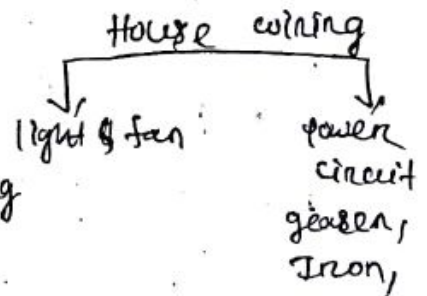 House wiring
light & fan
power
circuit
g
geaser,
Iron,